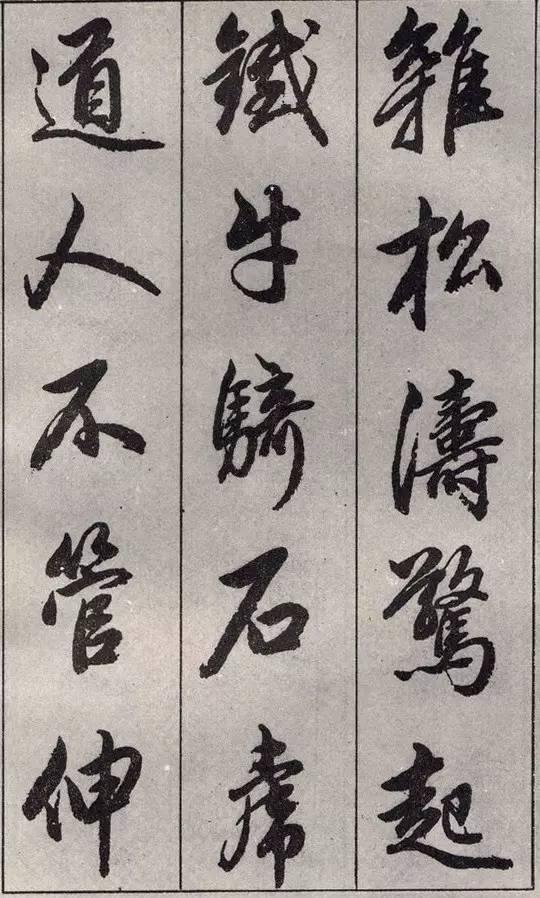 雜松濤驚起
鐵牛騎石虎
道人不管伸